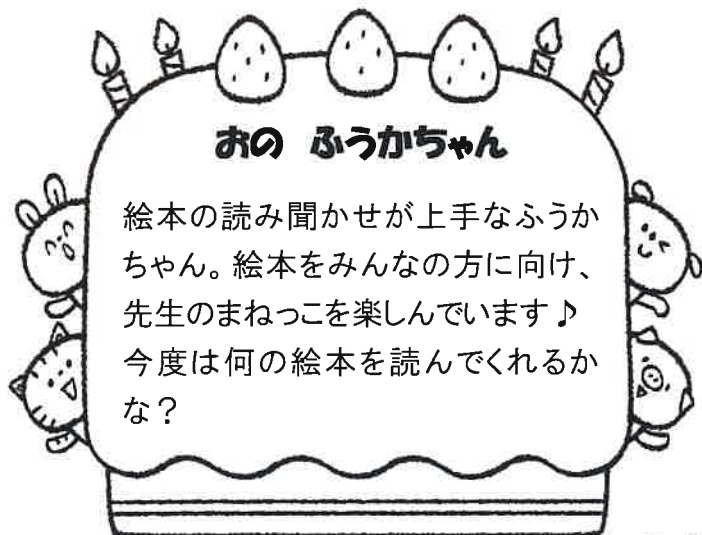 おの ふうかちゃん
絵本の読み聞かせが上手なふうか
ちゃん。絵本をみんなの方に向け、
先生のまねっこを楽しんでいます♪
今度は何の絵本を読んでくれるか
な？